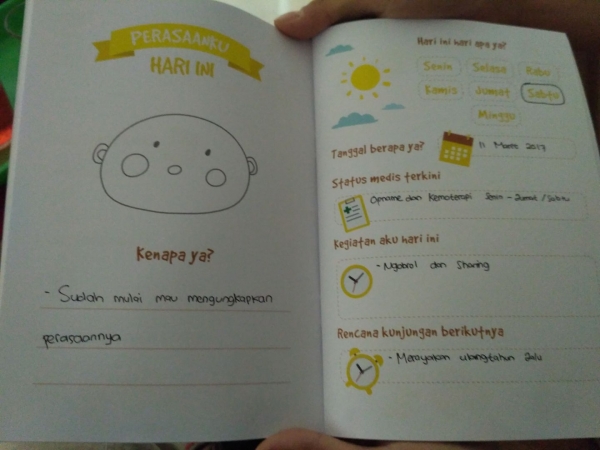 PERASAANKU
HARI INI
Kenapa ya?
- Sudah mulai mau mengungkapkan
perasaannya
Hari ini hari apa ya?
Senin Selasa Rabu
Kamis Jumat Sabtu
Minggu
Tanggal berapa ya?
11 Maret 2017
Status medis terkini
Opname dan Kemoterapi Senin - Jumat / Sabtu
Kegiatan aku hari ini
- Ngobrol dan Sharing
Rencana kunjungan berikutnya
- Merayakan ulangtahun